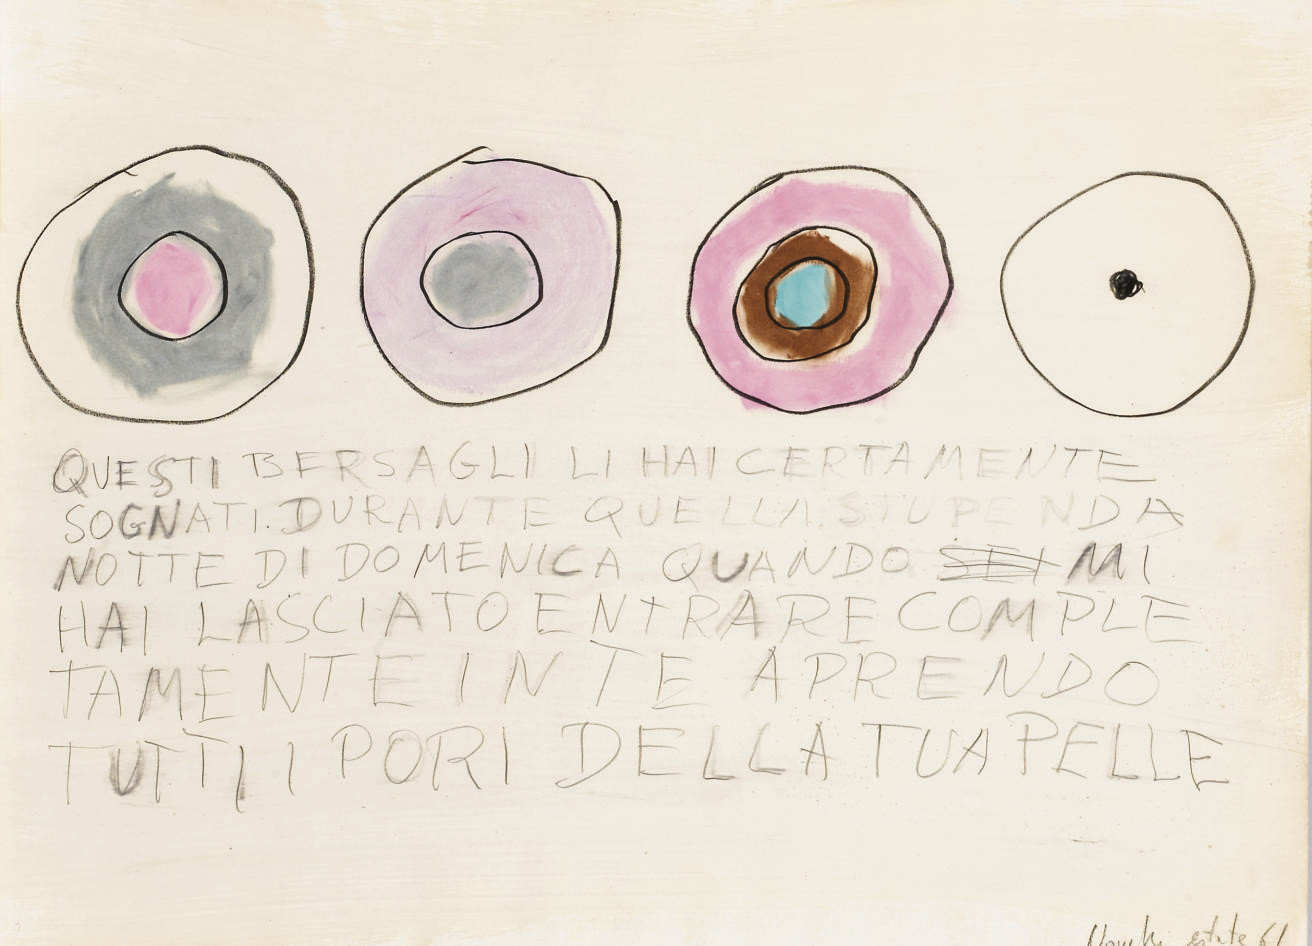 QUESTI BERSAGLI LI HAI CERTAMENTE
SOGNATI. DURANTE QUELLA STUPENDA
NOTTE DI DOMENICA QUANDO SEI MI
HAI LASCIATO ENTRARE COMPLE
TAMENTE IN TE APRENDO
TUTTI I PORI DELLA TUA PELLE
Novelli estate 61